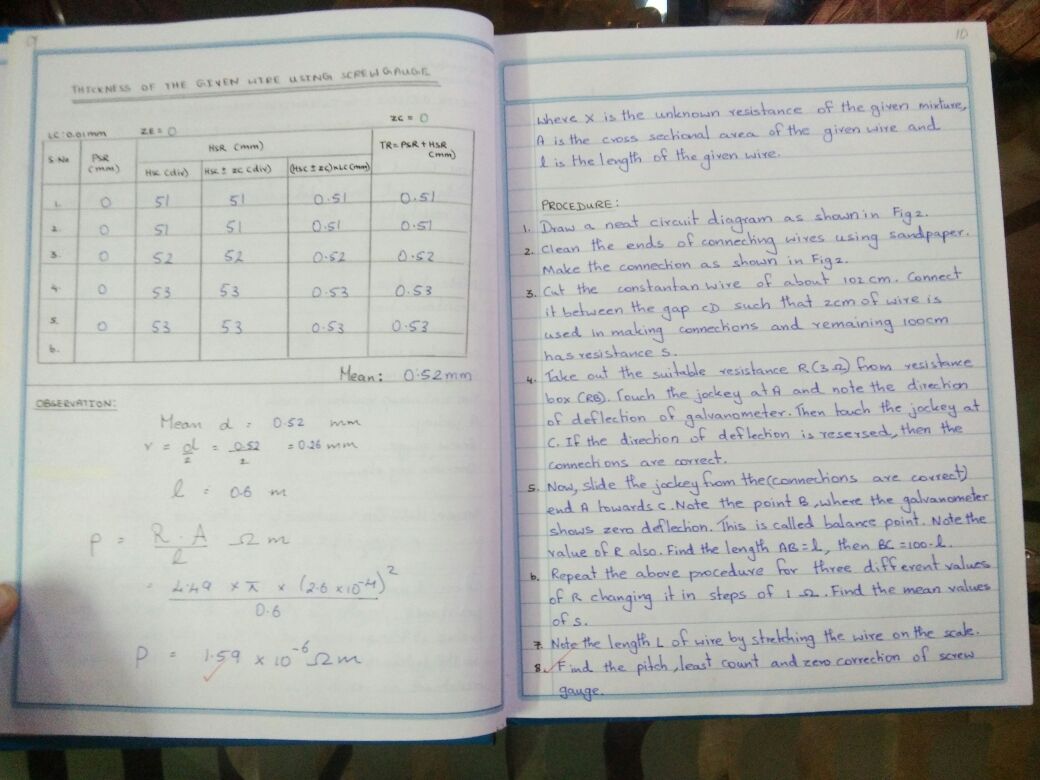 9
THICKNESS OF THE GIVEN WIRE USING SCREW GAUGE
LC: 0.01mm ZE = 0 ZC = 0
S.No PSR (mm) HSR (mm) TR = PSR + HSR (mm)
HSC (div) HSC ± ZC (div) (HSC ± ZC) × LC (mm)
1. 0 51 51 0.51 0.51
2. 0 51 51 0.51 0.51
3. 0 52 52 0.52 0.52
4. 0 53 53 0.53 0.53
5. 0 53 53 0.53 0.53
6.
Mean: 0.52mm
OBSERVATION:
Mean d = 0.52 mm
r = d/2 = 0.52/2 = 0.26 mm
l = 0.6 m
ρ = R.A/l Ωm
= 4.49 × π × (2.6 × 10⁻⁴)²/0.6
ρ = 1.59 × 10⁻⁶ Ωm
10
where X is the unknown resistance of the given mixture,
A is the cross sectional area of the given wire and
l is the length of the given wire.
PROCEDURE:
1. Draw a neat circuit diagram as shown in Fig 2.
2. Clean the ends of connecting wires using sandpaper.
Make the connection as shown in Fig 2.
3. Cut the constantan wire of about 102 cm. Connect
it between the gap CD such that 2cm of wire is
used in making connections and remaining 100cm
has resistance S.
4. Take out the suitable resistance R(3Ω) from resistance
box (RB). Touch the jockey at A and note the direction
of deflection of galvanometer. Then touch the jockey at
C. If the direction of deflection is resersed, then the
connections are correct.
5. Now, slide the jockey from the (connections are correct)
end A towards C. Note the point B, where the galvanometer
shows zero deflection. This is called balance point. Note the
value of R also. Find the length AB = l, then BC = 100-l.
6. Repeat the above procedure for three different values
of R changing it in steps of 1 Ω. Find the mean values
of S.
7. Note the length L of wire by stretching the wire on the scale.
8. Find the pitch, least count and zero correction of screw
gauge.